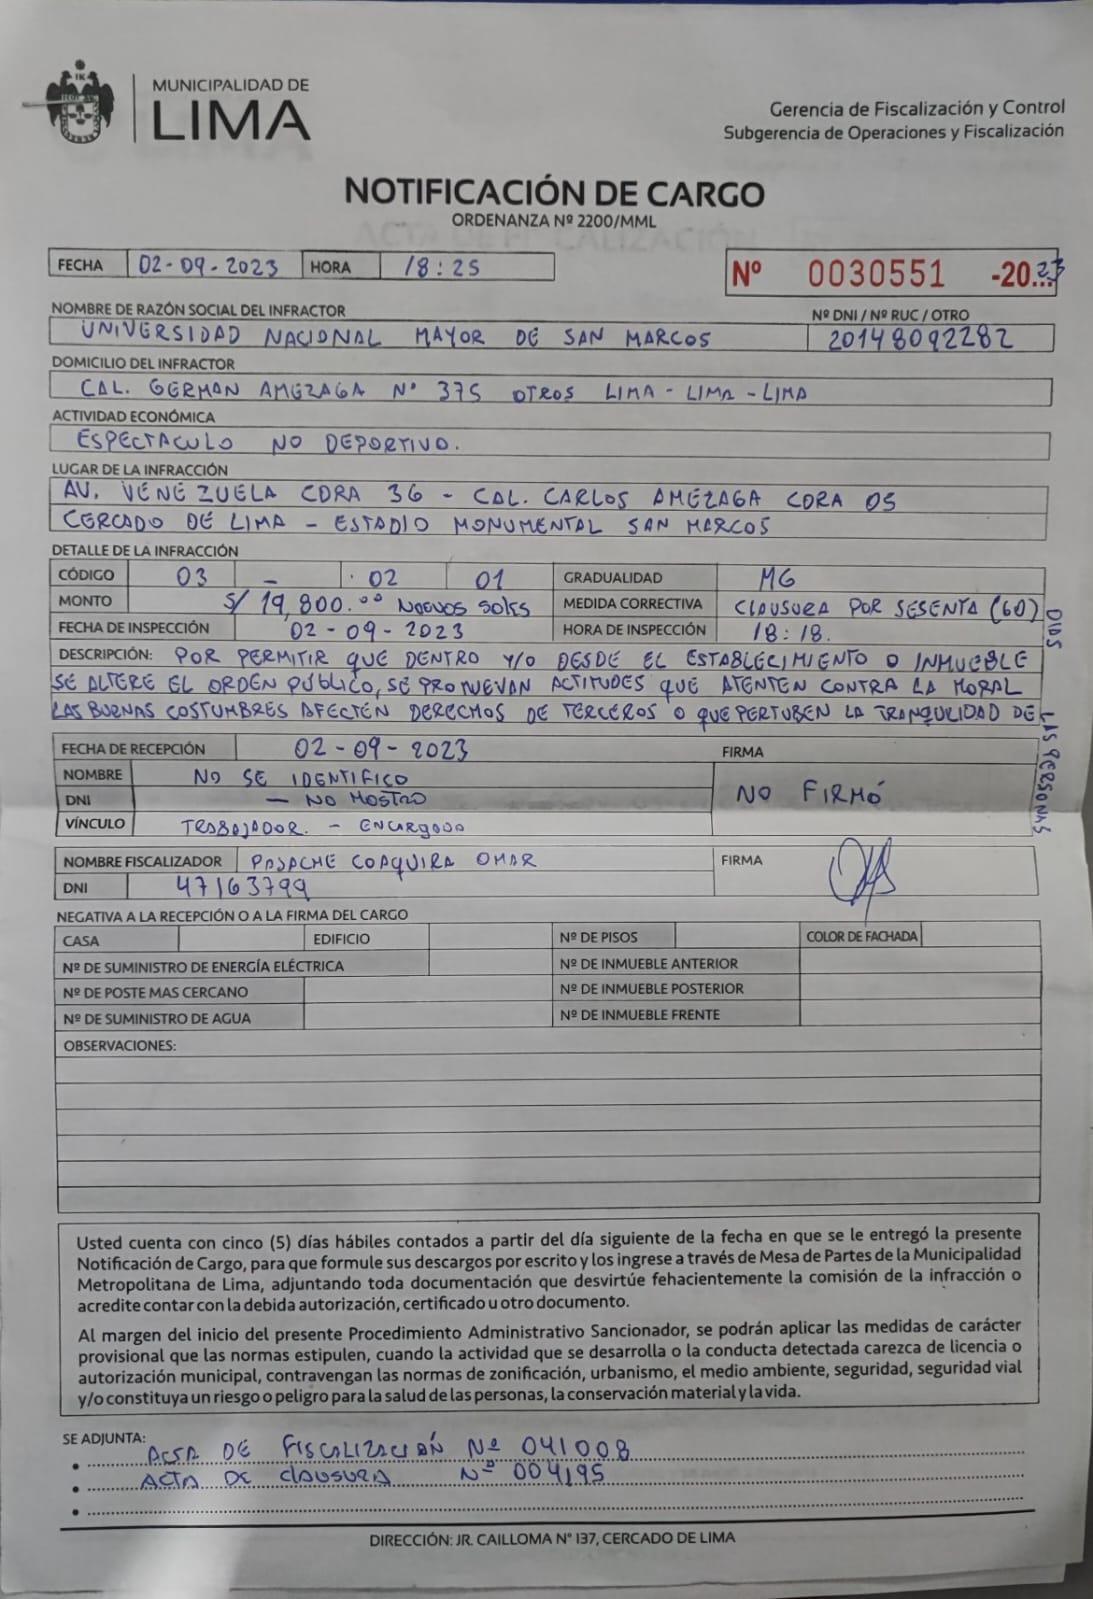 MUNICIPALIDAD DE
LIMA
Gerencia de Fiscalización y Control
Subgerencia de Operaciones y Fiscalización
NOTIFICACIÓN DE CARGO
ORDENANZA Nº 2200/MML
FECHA 02-09-2023 HORA 18:25
Nº 0030551 -20...23
NOMBRE DE RAZÓN SOCIAL DEL INFRACTOR Nº DNI / Nº RUC / OTRO
UNIVERSIDAD NACIONAL MAYOR DE SAN MARCOS 20148092282
DOMICILIO DEL INFRACTOR
CAL. GERMAN AMEZAGA Nº 375 OTROS LIMA - LIMA - LIMA
ACTIVIDAD ECONÓMICA
ESPECTACULO NO DEPORTIVO.
LUGAR DE LA INFRACCIÓN
AV. VENEZUELA CDRA 36 - CAL. CARLOS AMEZAGA CDRA 05
CERCADO DE LIMA - ESTADIO MONUMENTAL SAN MARCOS
DETALLE DE LA INFRACCIÓN
CÓDIGO 03 - 02 01 GRADUALIDAD MG
MONTO S/ 19,800.00 NUEVOS SOLES MEDIDA CORRECTIVA CLAUSURA POR SESENTA (60) DIAS
FECHA DE INSPECCIÓN 02-09-2023 HORA DE INSPECCIÓN 18:18.
DESCRIPCIÓN: POR PERMITIR QUE DENTRO Y/O DESDE EL ESTABLECIMIENTO O INMUEBLE
SE ALTERE EL ORDEN PUBLICO, SE PROMUEVAN ACTITUDES QUE ATENTEN CONTRA LA MORAL
LAS BUENAS COSTUMBRES AFECTEN DERECHOS DE TERCEROS O QUE PERTUBEN LA TRANQUILIDAD DE LAS PERSONAS
FECHA DE RECEPCIÓN 02-09-2023 FIRMA
NOMBRE NO SE IDENTIFICO
DNI - NO MOSTRO NO FIRMÓ
VÍNCULO TRABAJADOR. - ENCARGADO
NOMBRE FISCALIZADOR PASACHE COAQUIRA OMAR FIRMA
DNI 47163799
NEGATIVA A LA RECEPCIÓN O A LA FIRMA DEL CARGO
CASA EDIFICIO Nº DE PISOS COLOR DE FACHADA
Nº DE SUMINISTRO DE ENERGÍA ELÉCTRICA Nº DE INMUEBLE ANTERIOR
Nº DE POSTE MAS CERCANO Nº DE INMUEBLE POSTERIOR
Nº DE SUMINISTRO DE AGUA Nº DE INMUEBLE FRENTE
OBSERVACIONES:
Usted cuenta con cinco (5) días hábiles contados a partir del día siguiente de la fecha en que se le entregó la presente
Notificación de Cargo, para que formule sus descargos por escrito y los ingrese a través de Mesa de Partes de la Municipalidad
Metropolitana de Lima, adjuntando toda documentación que desvirtúe fehacientemente la comisión de la infracción o
acredite contar con la debida autorización, certificado u otro documento.
Al margen del inicio del presente Procedimiento Administrativo Sancionador, se podrán aplicar las medidas de carácter
provisional que las normas estipulen, cuando la actividad que se desarrolla o la conducta detectada carezca de licencia o
autorización municipal, contravengan las normas de zonificación, urbanismo, el medio ambiente, seguridad, seguridad vial
y/o constituya un riesgo o peligro para la salud de las personas, la conservación material y la vida.
SE ADJUNTA:
• ACTA DE FISCALIZACIÓN Nº 041008
• ACTA DE CLAUSURA Nº 004195
•
DIRECCIÓN: JR. CAILLOMA N° 137, CERCADO DE LIMA